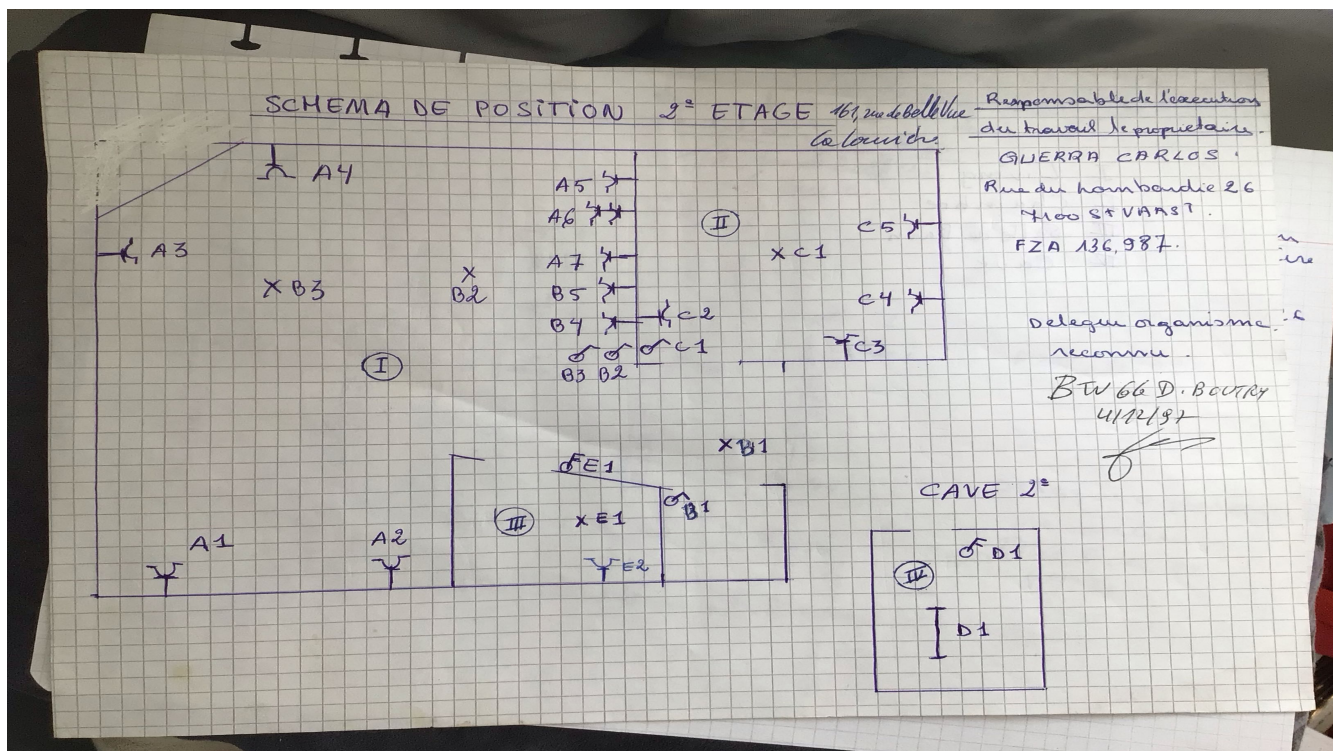 SCHEMA DE POSITION 2e ETAGE 161, rue de BelleVue
La Louvière
Responsable de l'execution
du travail le proprietaire.
GUERRA CARLOS.
Rue du Lombardie 26
7100 St VAAST.
FZA 136,987.
Delegue organisme
reconnu.
BTV 66 D. BOUTRY
4/12/97
A4
A3
A5
A6
A7
B5
B4
B3 B2
XB3
X
B2
I
II
X C1
C5
C4
C2
C1
C3
X B1
E1
B1
III
X E1
E2
A1
A2
CAVE 2e
IV
D1
D1